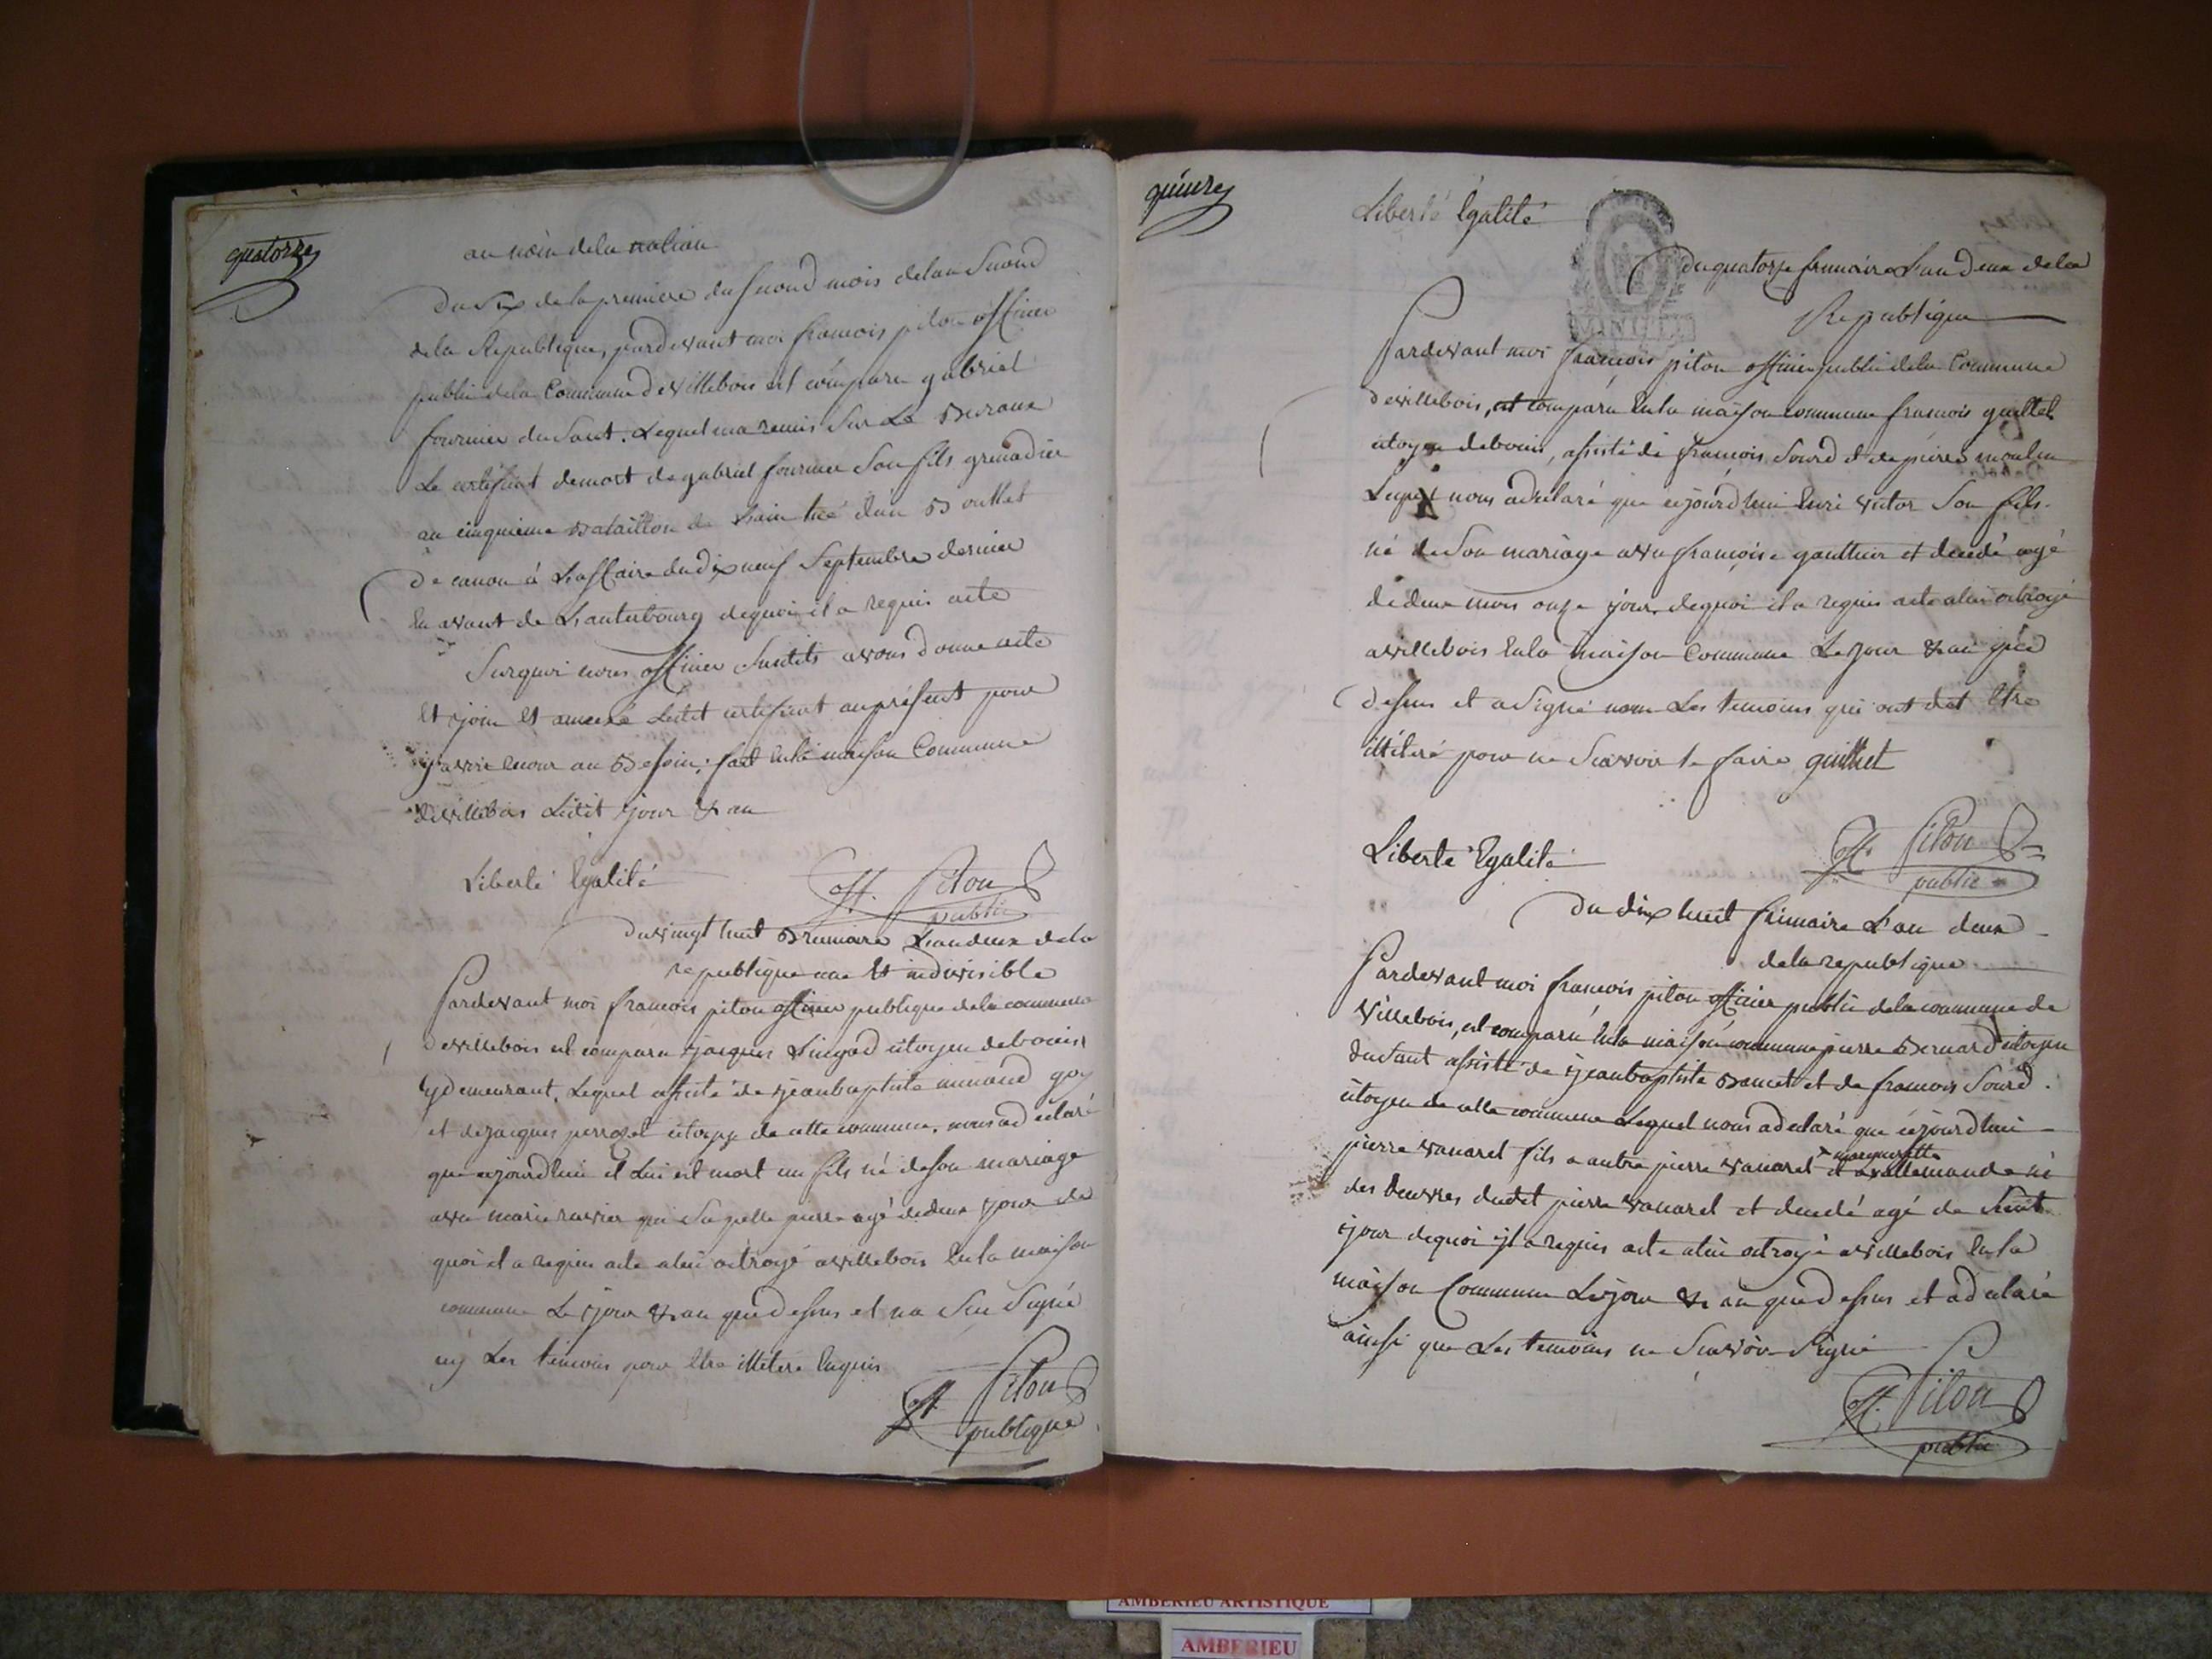 quatorze
au nom de la nation
Du Six de la premiere du second mois de lan Second
de la Republique, pardevant moi francois piton officier
public de la Commune de villebois est comparu gabriel
fournier du Saut. Lequel ma remis Sur Le Bureaux
Le certificat de mort de gabriel fournier Son fils grenadier
au cinquieme Bataillon de Lain tué d'un Boullet
de canon à Laffaire du dix neuf Septembre dernier
En avant de Lauterbourg dequoi il a requis acte
Surquoi nous officier Susdits avons donne acte
Et join Et annexé Ledit certificat au présent pour
y avoir recour au Besoin; fait En la maison Commune
de villebois Ledit jour & an
Liberté Egalité
off. Piton
public
Du vingt huit Brumaire Lan deux de la
republique une Et indivisible
Pardevant moi francois piton officier publique de la commune
de villebois est comparu jacques Lingod citoyen de bouis
y demeurant, Lequel assisté de jean baptiste goy
et de jacques perrozet citoyen de cette commune, nous a déclaré
que cejourdhui il Lui est mort un fils né de son mariage
avec marie ravier qui Sapelle pierre agé de deux jour de
quoi il a requis acte a lui octroyé a villebois En la maison
commune Le jour & an que dessus et na Sçu Signé
ny Les temoins pour Etre illitere Enquis
off. Piton
publique
quinze
Liberté Egalité
Du quatorze frimaire Lan deux de la
Republique
Pardevant moi francois piton officier public de la Commune
de villebois, est comparu En la maison commune francois guillet
citoyen de bouis, assisté de francois Sourd & de pierre moulin
Lequel nous a declaré que cejourdhui henri victor Son fils
né de Son mariage avec francoise gauthier et decedé agé
de deux mois onze jour, dequoi il a requis acte a lui octroyé
a villebois En la maison Commune Le jour & an que
dessus et a Signé non Les temoins qui ont dit Etre
illiteré pour ne Scavoir le faire guillet
off. Piton
public
Liberté Egalité
Du dix huit frimaire L'an deux
de la republique
Pardevant moi francois piton officier public de la commune de
villebois, est comparu En la maison commune pierre Bernard citoyen
du Saut assisté de jean baptiste Bancet et de francois Sourd
citoyen de cette commune Lequel nous a declaré que cejourdhui
pierre vanarel fils a autre pierre vanarel et a marguerite allemand né
des Euvres dudit pierre vanarel et decedé agé de huit
jour dequoi il a requis acte a lui octroyé a villebois En la
maison Commune Le jour & an que dessus et a declaré
ainsi que Les temoins ne Scavoir Signé
off. Piton
public
AMBERIEU ARTISTIQUE
AMBERIEU